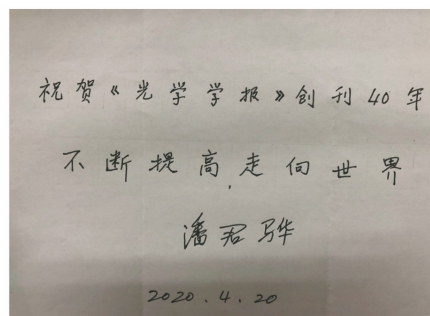 祝贺《光学学报》创刊40年
不断提高,走向世界
潘君骅
2020.4.20